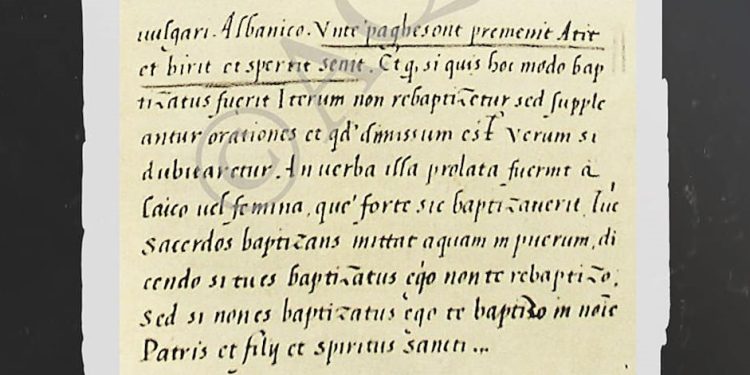 uulgari. Albanico. Vnte' paghesont premenit Atit
et birit et spertit senit. Et q, si quis hoc modo bap
tizatus fuerit Iterum non rebaptizetur sed supple
antur orationes et qd' dimissum est Verum si
dubitaretur. An uerba illa prolata fuerint à
Laico uel femina, que' forte sic baptizauerit, tūc
Sacerdos baptizans mittat aquam in puerum, di
cendo si tu es baptizatus ego non te rebaptizo,
Sed si non es baptizatus ego te baptizo in noīe
Patris et filij et Spiritus Sancti ...